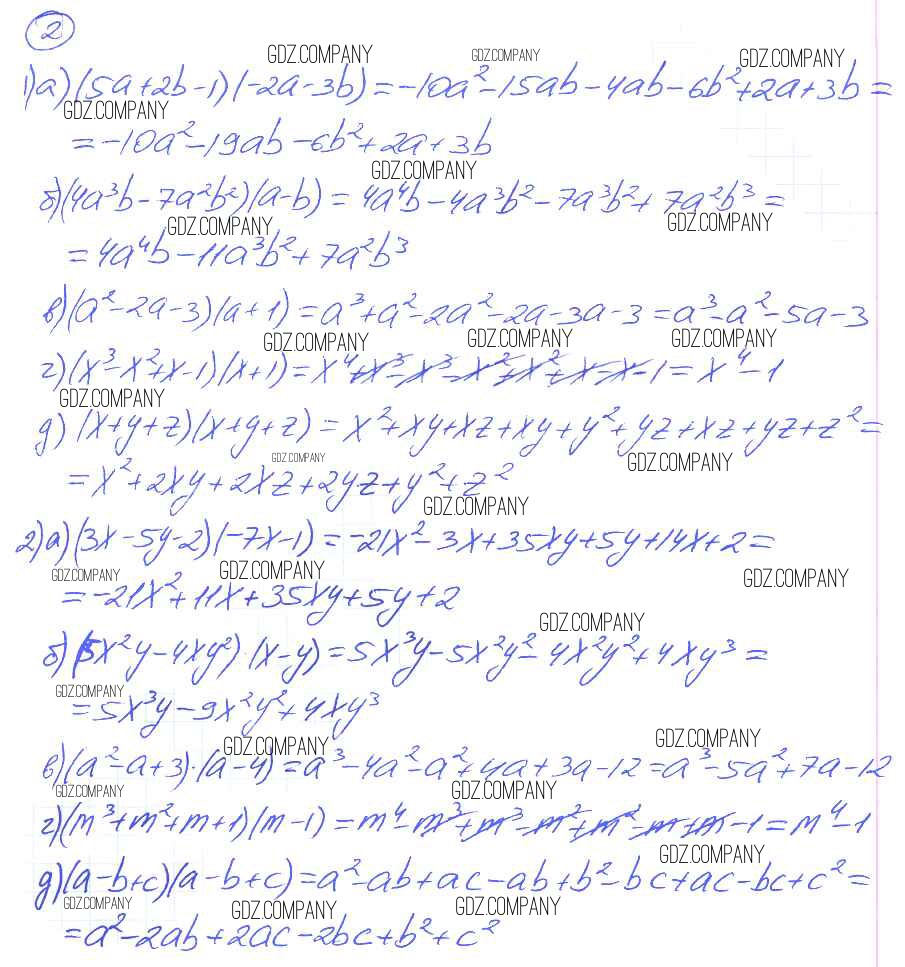 2
GDZ.COMPANY GDZ.COMPANY GDZ.COMPANY
1)а) (5a+2b-1)(-2a-3b) = -10a²-15ab-4ab-6b²+2a+3b =
GDZ.COMPANY
= -10a²-19ab-6b²+2a+3b
GDZ.COMPANY
б) (4a³b-7a²b²)(a-b) = 4a⁴b-4a³b²-7a³b²+7a²b³ =
GDZ.COMPANY GDZ.COMPANY
= 4a⁴b-11a³b²+7a²b³
в) (a²-2a-3)(a+1) = a³+a²-2a²-2a-3a-3 = a³-a²-5a-3
GDZ.COMPANY GDZ.COMPANY GDZ.COMPANY
г) (x³-x²+x-1)(x+1) = x⁴+x³-x³-x²+x²+x-x-1 = x⁴-1
GDZ.COMPANY
д) (x+y+z)(x+y+z) = x²+xy+xz+xy+y²+yz+xz+yz+z² =
GDZ.COMPANY GDZ.COMPANY
= x²+2xy+2xz+2yz+y²+z²
GDZ.COMPANY
2)а) (3x-5y-2)(-7x-1) = -21x²-3x+35xy+5y+14x+2 =
GDZ.COMPANY GDZ.COMPANY GDZ.COMPANY
= -21x²+11x+35xy+5y+2
GDZ.COMPANY
б) (5x²y-4xy²)·(x-y) = 5x³y-5x²y²-4x²y²+4xy³ =
GDZ.COMPANY
= 5x³y-9x²y²+4xy³
GDZ.COMPANY GDZ.COMPANY
в) (a²-a+3)·(a-4) = a³-4a²-a²+4a+3a-12 = a³-5a²+7a-12
GDZ.COMPANY GDZ.COMPANY
г) (m³+m²+m+1)(m-1) = m⁴-m³+m³-m²+m²-m+m-1 = m⁴-1
GDZ.COMPANY
д) (a-b+c)(a-b+c) = a²-ab+ac-ab+b²-bc+ac-bc+c² =
GDZ.COMPANY GDZ.COMPANY GDZ.COMPANY
= a²-2ab+2ac-2bc+b²+c²